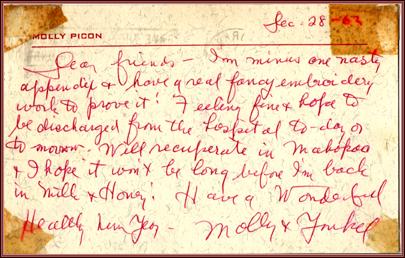 Dec. 28 - 63
MOLLY PICON
Dear friends - I'm minus one nasty
appendix & have a real fancy embroidery
work to prove it! Feeling fine & hope to
be discharged from the hospital to-day or
to morrow. Will recuperate in Mahopac
& I hope it won't be long before I'm back
in Milk & Honey! Have a Wonderful
Healthy New Year - Molly & Yonkel